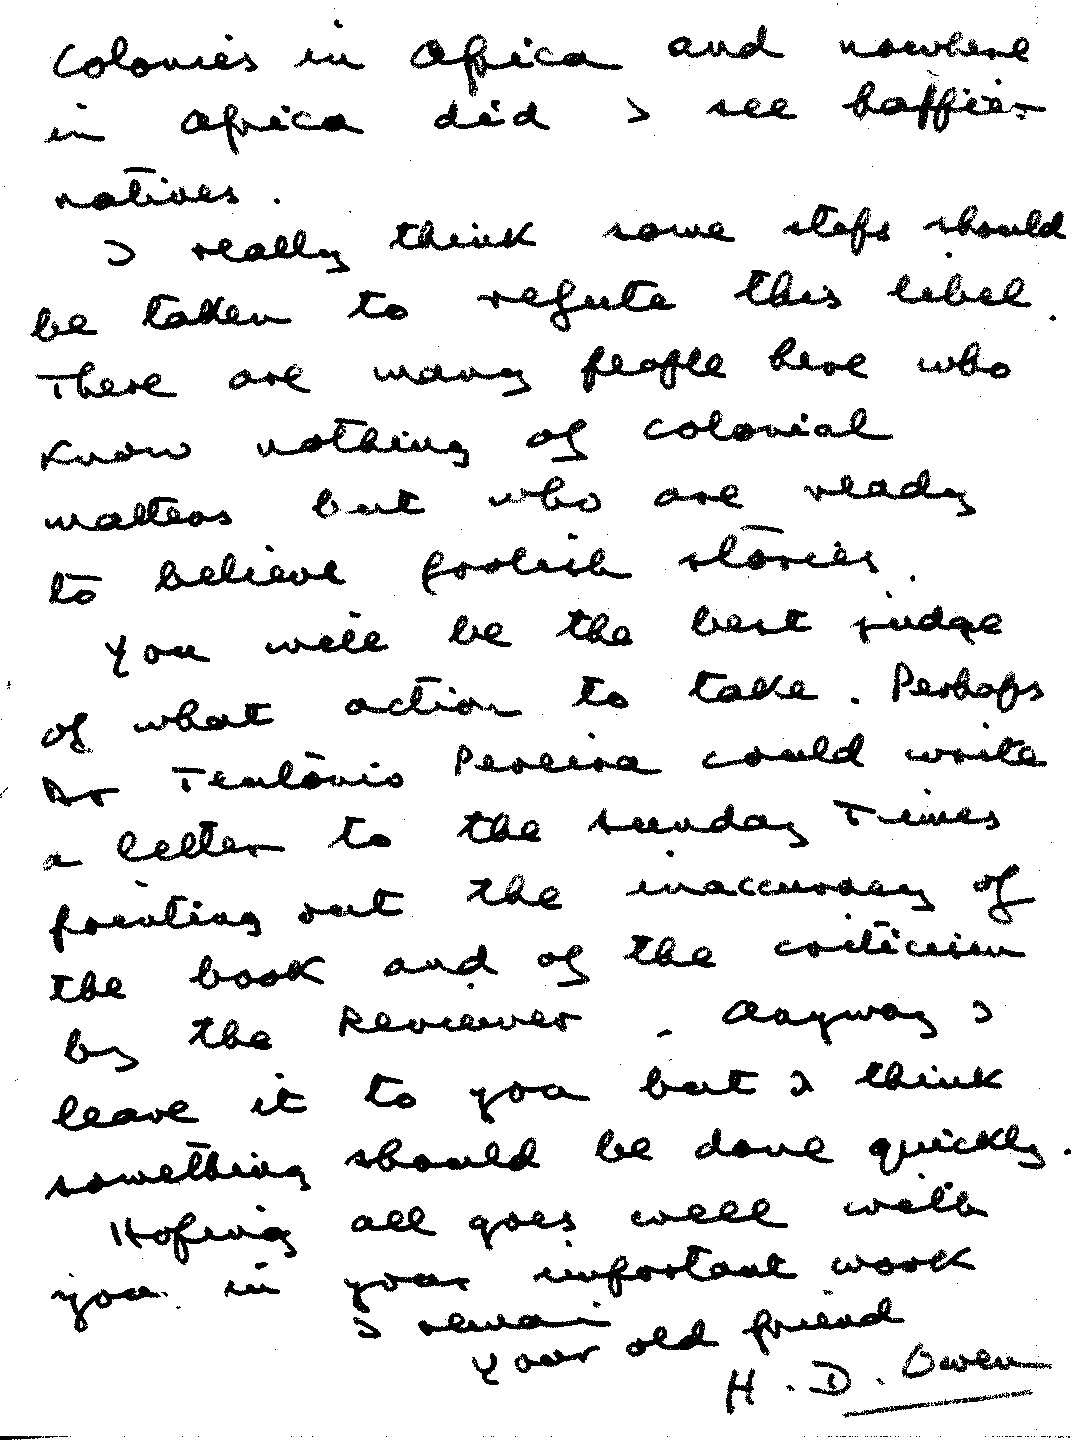 colonies in Africa and nowhere
in Africa did I see happier
natives.
I really think some steps should
be taken to refute this libel.
There are many people here who
know nothing of colonial
matters but who are ready
to believe foolish stories.
You will be the best judge
of what action to take. Perhaps
Dr Teotónio Pereira could write
a letter to the Sunday Times
pointing out the inaccuracy of
the book and of the criticism
by the Reviewer. Anyway I
leave it to you but I think
something should be done quickly.
Hoping all goes well with
you in your important work
I remain
your old friend
H. D. Owen